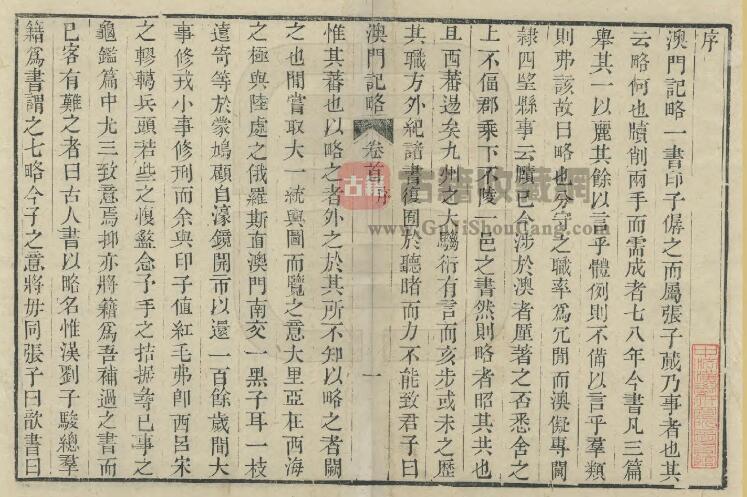 序
澳門記略一書印子僝之而屬張子蕆乃事者也其
云略何也牘削兩手而需成者七八年今書凡三篇
舉其一以麗其餘以言乎體例則不備以言乎羣類
則弗該故曰略也分守之職率爲冗閒而澳儗專閫
隷四望縣事云牘已仝涉於澳者厪著之否悉舍之
上不偪郡乘下不陵一邑之書然則略者昭其共也
且西蕃邊矣九州之大騶衍有言而亥步或未之歷
其職方外紀諸書復囿於聽睹而力不能致君子曰
澳門記略 卷首序 一
惟其蕃也以略之者外之於其所不知以略之者闕
之也閒嘗取大一統輿圖而覽之意大里亞在西海
之極與陸處之俄羅斯直澳門南交一黑子耳一枝
遠寄等於蒙鳩顧自濠鏡開市以還一百餘歲間大
事修戎小事修刑而余與印子值紅毛弗郎西呂宋
之轇轕兵頭若些之愎盭念子手之拮据等已事之
龜鑑篇中尤三致意焉抑亦將籍爲吾補過之書而
已客有難之者曰古人書以略名惟漢劉子駿總羣
籍爲書謂之七略今子之意將毋同張子曰歆書曰
古籍 古籍收藏網
www.GuJiShouCang.com